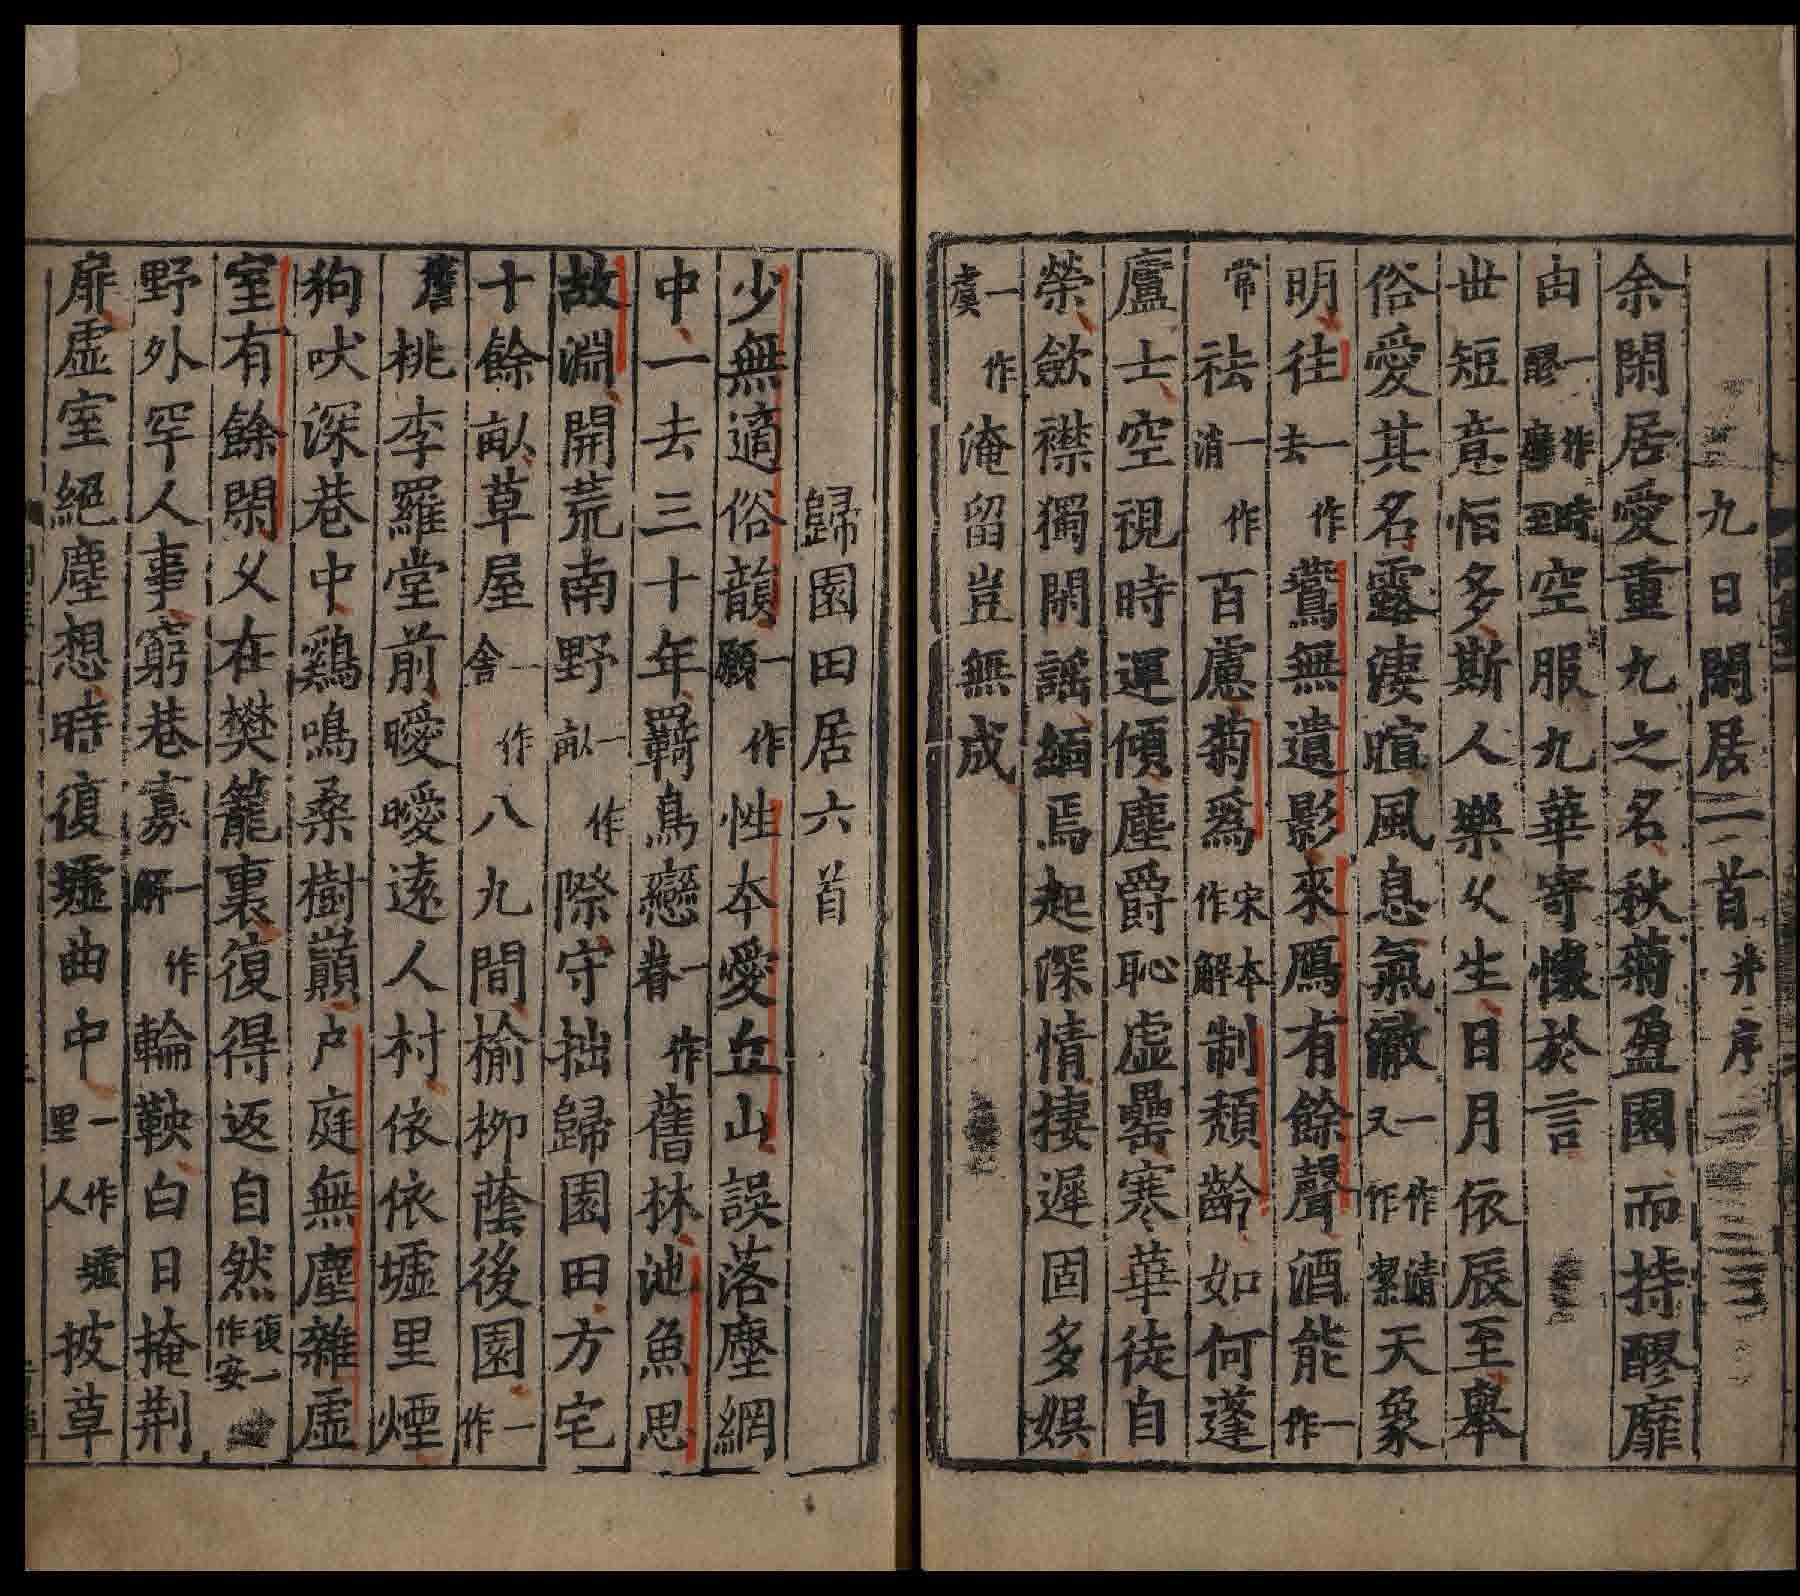 九日閑居一首并序
余閑居愛重九之名秋菊盈園而持醪靡
由一作醪膠時至空服九華寄懷於言
世短意恒多斯人樂久生日月依辰至舉
俗愛其名露淒暄風息氣澈一作清又作潔天象
明往一作去鷰無遺影來鴈有餘聲酒能一作
常祛一作消百慮菊爲宋本作解制頽齡如何蓬
廬士空視時運傾塵爵恥虛罍寒華徒自
榮斂襟獨閑謡緬焉起深情棲遲固多娛
一作虞淹留豈無成
歸園田居六首
少無適俗韻一作願性本愛丘山誤落塵網
中一去三十年羇鳥戀一作眷舊林池魚思
故淵開荒南野一作畝際守拙歸園田方宅
十餘畝草屋一作舍八九間榆柳蔭後園一作
簷桃李羅堂前曖曖遠人村依依墟里煙
狗吠深巷中鷄鳴桑樹巔户庭無塵雜虛
室有餘閑久在樊籠裏復得返自然復一作安
野外罕人事窮巷寡一作解輪鞅白日掩荆
扉虛室絕塵想時復墟曲中一作墟里人披草